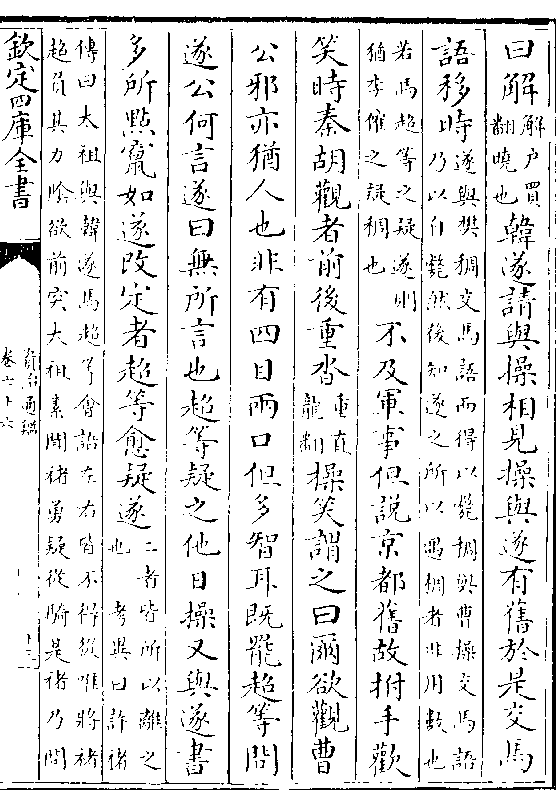 曰解解户買翻曉也韓遂請與操相見操與遂有舊於是交馬
語移時遂與樊稠交馬語而得以斃稠與曹操交馬語乃以自斃然後知遂之所以遇稠者非用數也
若馬超等之疑遂則猶李傕之疑稠也不及軍事但說京都舊故拊手歡
笑時秦胡觀者前後重沓重直龍翻操笑謂之曰爾欲觀曹
公邪亦猶人也非有四目兩口但多智耳既罷超等問
遂公何言遂曰無所言也超等疑之他日操又與遂書
多所點竄如遂改定者超等愈疑遂二者皆所以離之也考異曰許褚
傳曰太祖與韓遂馬超等會語左右皆不得從唯將褚超負其力隂欲前突太祖素聞褚勇疑從騎是褚乃問
欽定四庫全書
資治通鑑
卷六十六